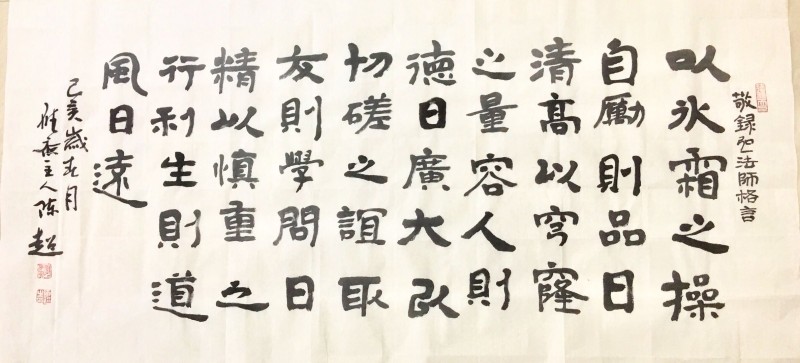 敬録弘一法師格言
以冰霜之操
自勵則品日
清高以穹窿
之量容人則
德日廣大以
切磋之誼取
友則學問日
精以慎重之
行利生則道
風日遠
己亥歲春月
主人陳超